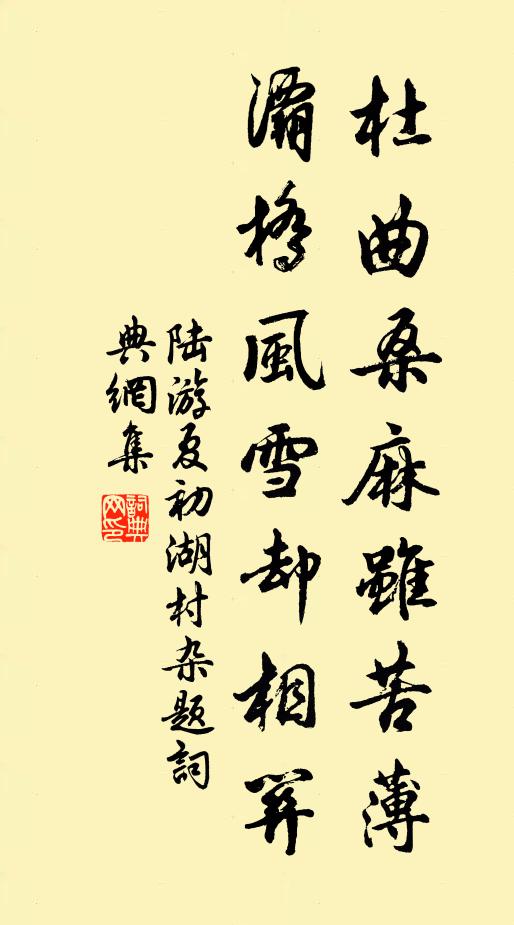 杜曲桑麻雖苦薄
灞橋風雪却相關
陸游夏初湖村杂题詞
典網集
詞典網印